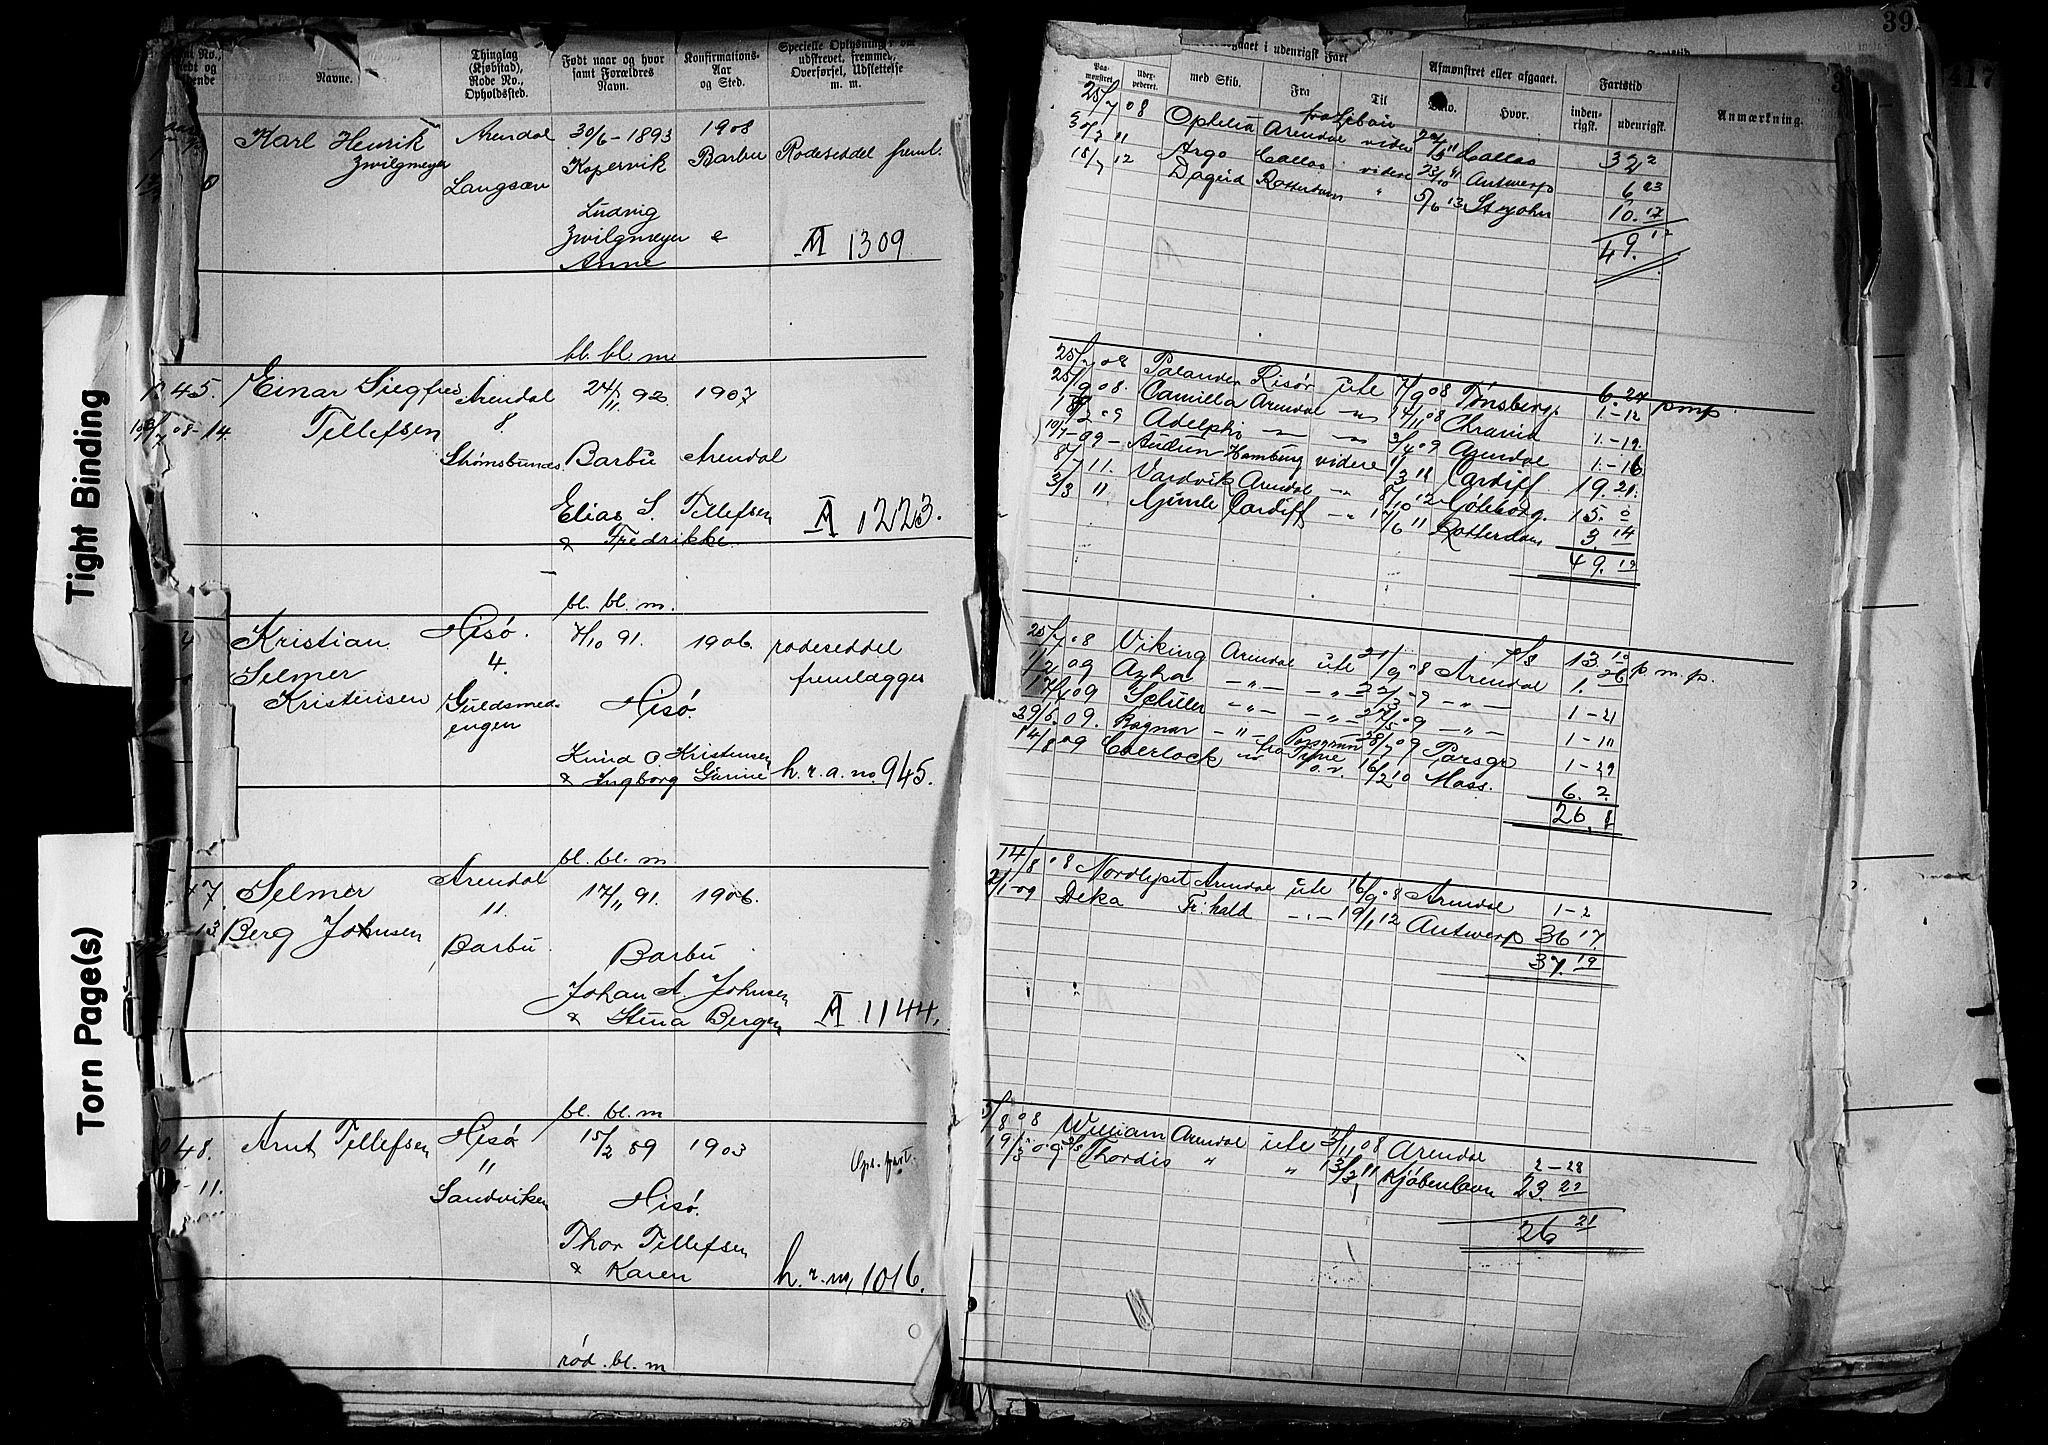 Navne.
Thinglag
(Kjøbstad),
Rode No.,
Opholdssted.
Født naar og hvor
samt Forældres
Navn.
Konfirmations-
Aar
og Sted.
Specielle Oplysninger om
udskrevet, fremmø,
Overførsel, Udslettelse
m. m.
Karl Henrik
Zwilgmeyer
Arendal
Langsæv
30/6-1893
Kopervik
Ludvig
Zwilgmeyer &
Anne
1908
Barbu
Rodeseddel freml.
A 1309
bl. bl. m
45.
08-14.
Einar Siegfred
Tellefsen
Arendal
8.
Strømsbunes.
24/11 92
Barbu
Elias S. Tellefsen
& Fredrikke.
1907
Arendal
A 1223.
bl. bl. m.
Kristian
Selmer
Kristensen
Hisø.
4.
Guldsmed-
engen
7/10 91.
Hisø.
Knud O. Kristensen
& Ingborg Gurine
1906
rodeseddel
fremlægges
h. r. a. no. 945.
bl. bl. m
7.
13
Selmer
Berg Johnsen
Arendal
11.
Barbu
17/11 91.
Barbu
Johan A. Johnsen
& Stina Bergen
1906.
A 1144.
bl. bl. m
48.
-11.
Arnt Tellefsen
Hisø
11
Sandviken
15/2 89
Hisø.
Thor Tellefsen
& Karen
1903
h. r. no. 1016.
rød. bl. m
Tight Binding
Torn Page(s)
39
417
i udenrigsk Fart
Paa-
mønstret.
Udex-
pederet.
med Skib.
Fra
Til
Afmønstret eller afgaaet.
Hvor.
Fartstid
inden-
rigsk.
udenrigsk.
Anmærkning.
25/7 08 Ophelia Arendal videre Callao 32 2
11 Argo Callao videre 23/10 11 Antwerp 6 23
18/7 12 Dagrid Rotterdam " 5/6 13 St. John 10. 17
49. 12
25/7 08 Palander Risør ute 7/9 08 Tønsberg 6. 27 pmp.
25/9 08. Camilla Arendal - " - 14/11 08 1-12
09 Adelphi - " - 2/4 09 Arendal 1.-19.
10/7-09- Audun Hamburg videre 11/3 11 Cardiff 1.-16
8/7 11. Vardvik Arendal - " - 8/10 12 Gøteborg. 19. 21.
3/3 " Gimle Cardiff - " - 17/6 11 Rotterdam 15. 0
3. 14
49. 19
25/7 08 Viking Arendal ute 21/9 08 Arendal 13. 10 p. m. p.
09 - " - - " - 1. 26
09 Schiller - " - - " - 09 - " - 1-21
29/5. 09. Ragnar - " - Porsgrund 28/7 09 Porsgr 1-11
14/8 09 Coerlock fra Tyne 16/2 10 Moss. 1-29
6. 2.
26. 8
14/8 08 Nordlyset Arendal ute 16/9 08 Arendal 1-2
2/1-09 Deka Fr.hald - " - 19/1 12 Antwerp 36 17
37. 19
5/8 08 William Arendal ute 3/11 08 Arendal 2-28
19/3 09 Thordis " " 13/2 11 Kjøbenhavn 23. 23
26 21